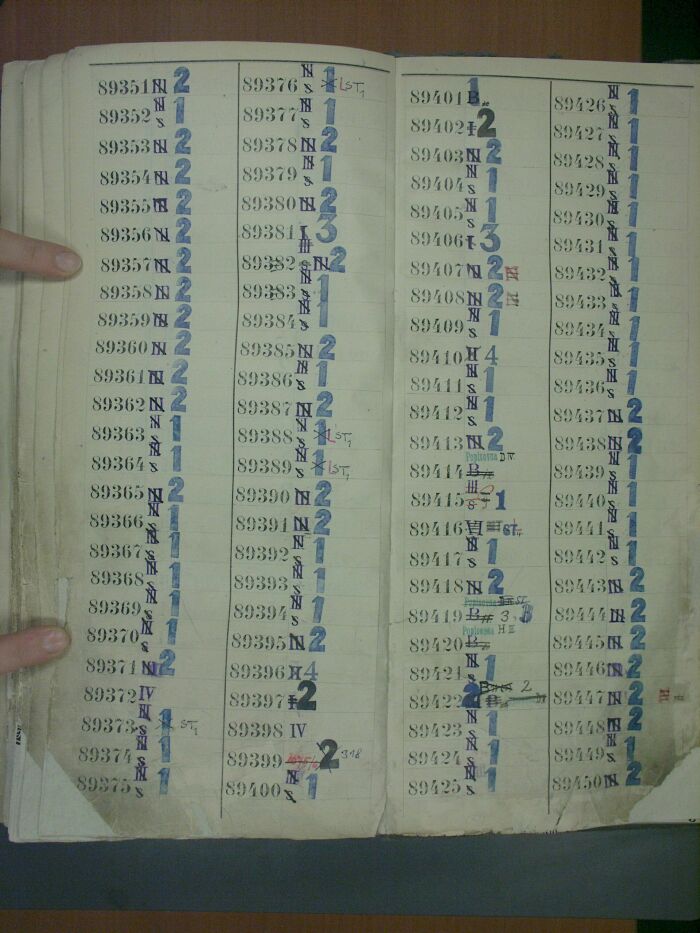 89351 N 2
89352 N s 1
89353 N 2
89354 N 2
89355 N 2
89356 N 2
89357 N 2
89358 N 2
89359 N 2
89360 N 2
89361 N 2
89362 N 2
89363 N s 1
89364 N s 1
89365 N 2
89366 N s 1
89367 N s 1
89368 N s 1
89369 N s 1
89370 N s 1
89371 N 2
89372 IV
89373 N s 1 ST1
89374 N s 1
89375 N s 1
89376 N s 1 LST1
89377 N s 1
89378 N 2
89379 N s 1
89380 N 2
89381 I 3
89382 III s N 2
89383 N s 1
89384 N s 1
89385 N 2
89386 N s 1
89387 N 2
89388 N s 1 LST1
89389 N s 1 LST1
89390 N 2
89391 N 2
89392 N s 1
89393 N s 1
89394 N s 1
89395 N 2
89396 II 4
89397 I 2
89398 IV
89399 2 318
89400 N s 1
89401 B 1
89402 I 2
89403 N 2
89404 N s 1
89405 N s 1
89406 I 3
89407 N 2
89408 N 2
89409 N s 1
89410 II 4
89411 N s 1
89412 N s 1
89413 N 2
Popisovna D IV
89414 B
89415 III s 1
89416 VI ST
89417 N s 1
89418 N 2
Popisovna
89419 B 3
Popisovna H II
89420 B
89421 N s 1
89422 2 B 2
89423 N s 1
89424 N s 1
89425 N s 1
89426 N s 1
89427 N s 1
89428 N s 1
89429 N s 1
89430 N s 1
89431 N s 1
89432 N s 1
89433 N s 1
89434 N s 1
89435 N s 1
89436 N s 1
89437 N 2
89438 N 2
89439 N s 1
89440 N s 1
89441 N s 1
89442 N s 1
89443 N 2
89444 N 2
89445 N 2
89446 N 2
89447 N 2
89448 N 2
89449 N s 1
89450 N 2